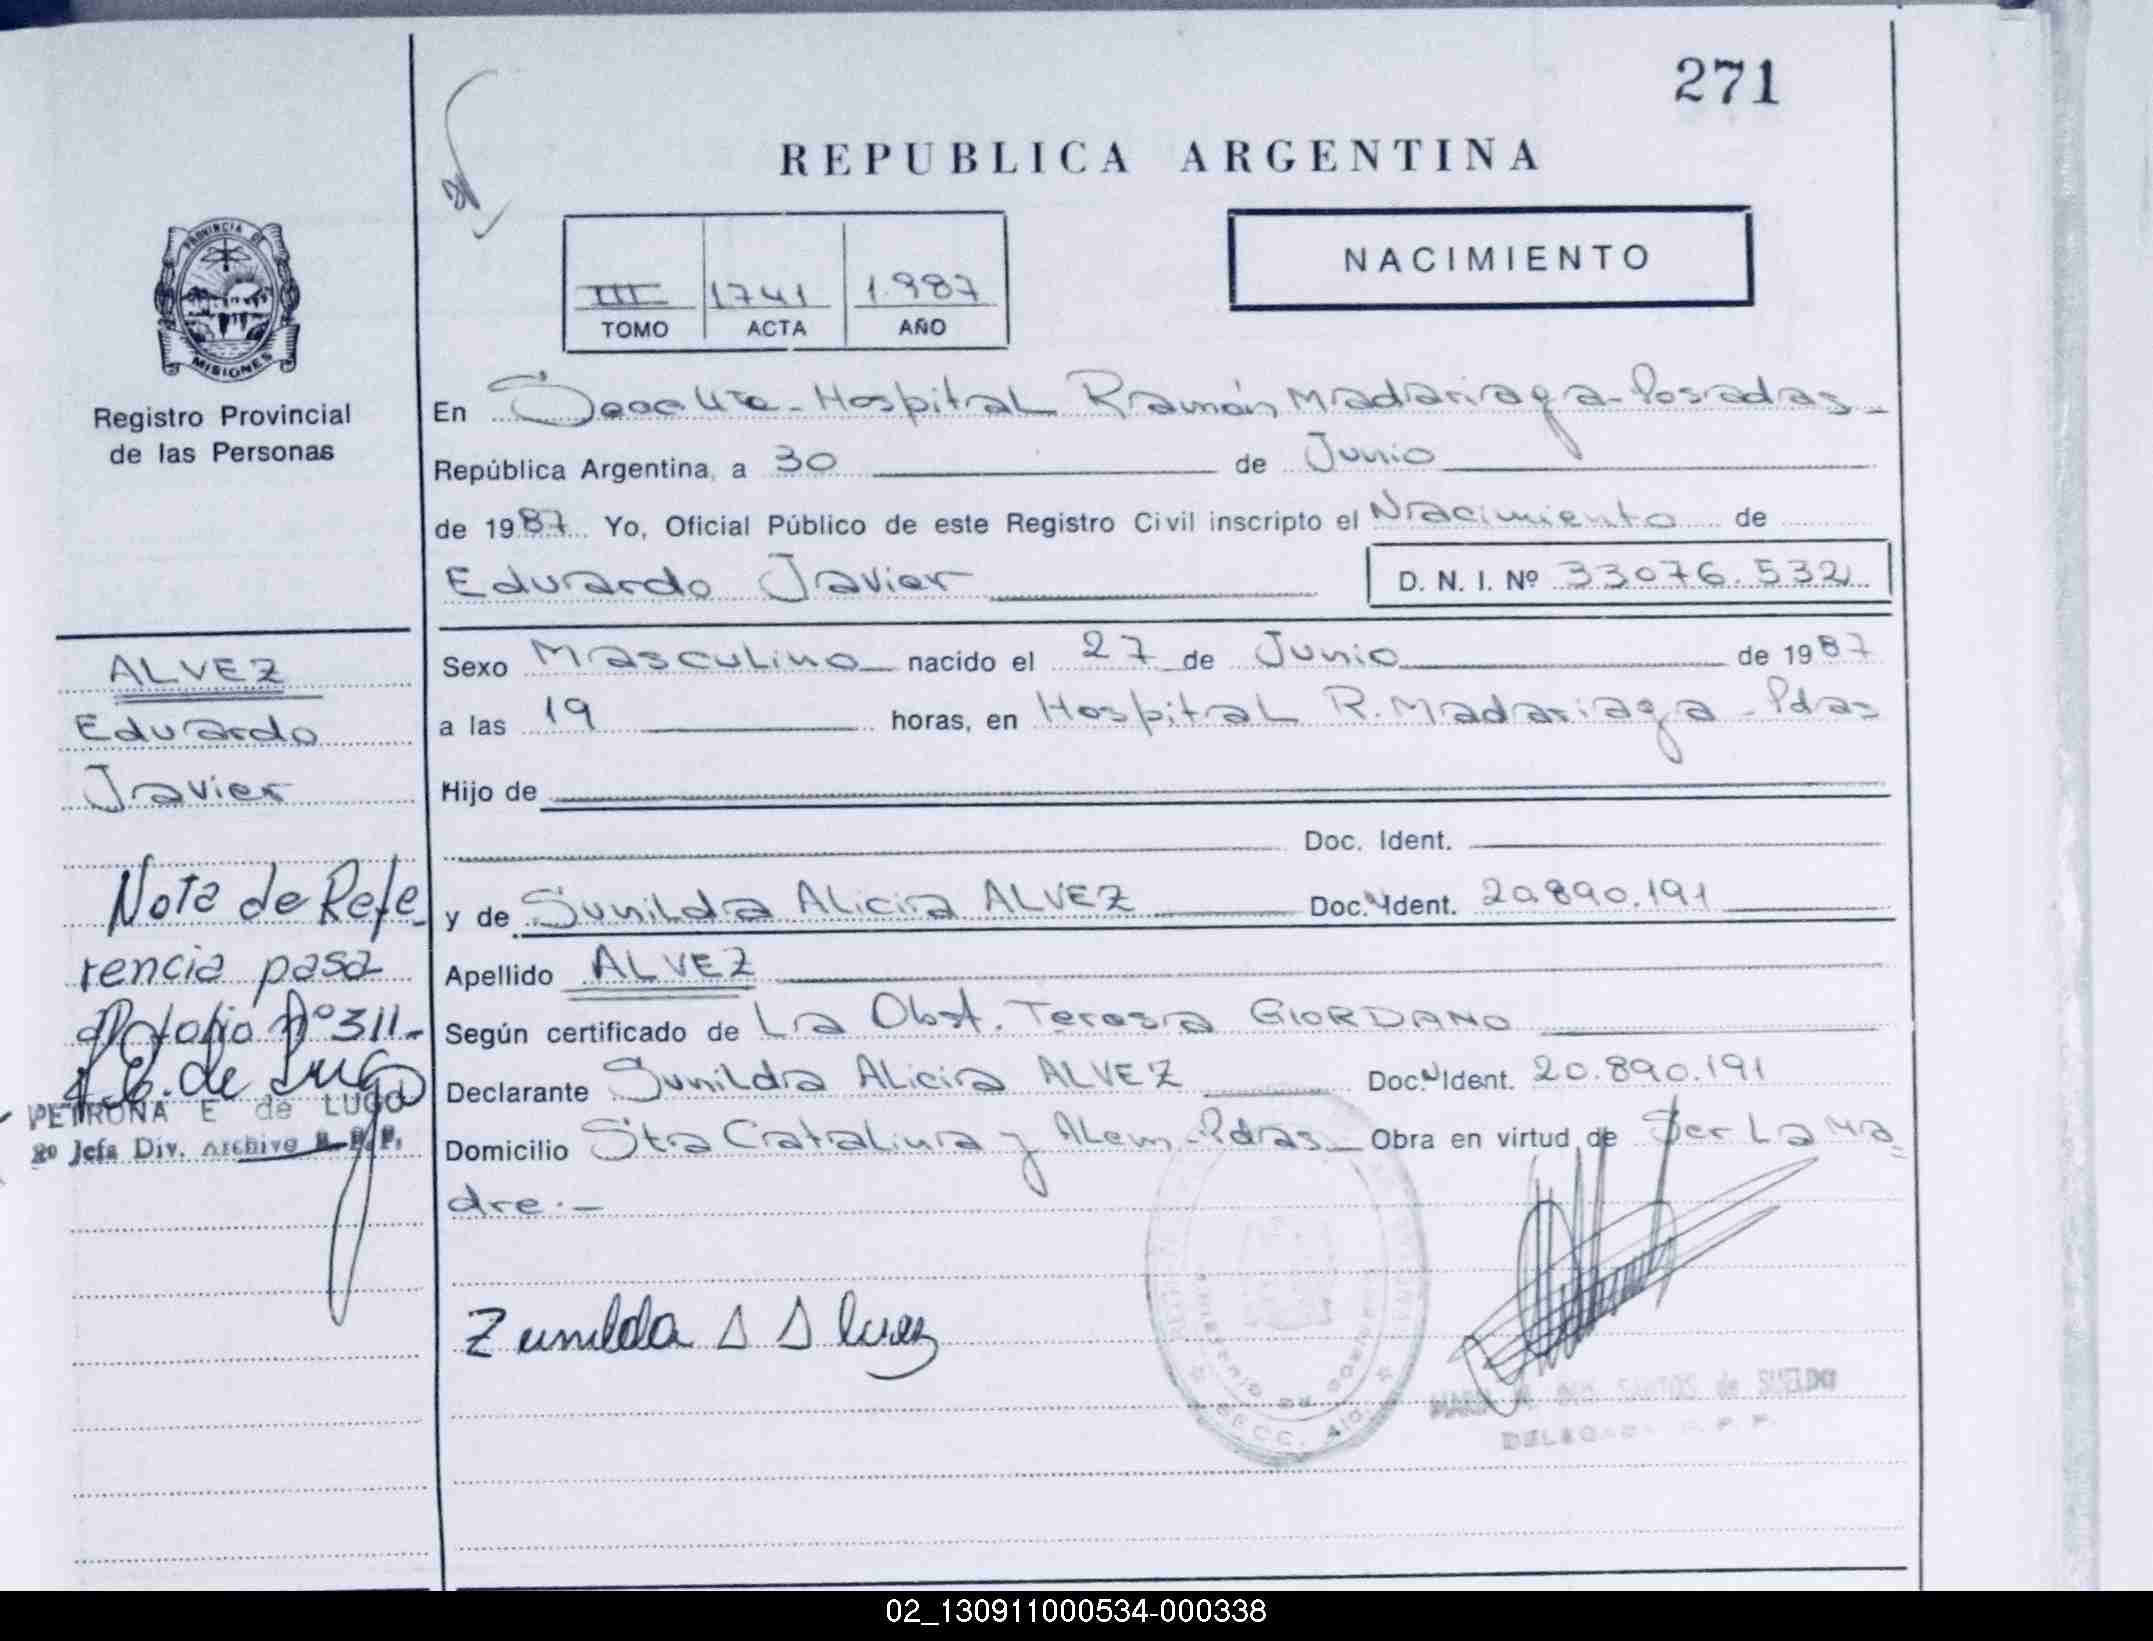 271
REPUBLICA ARGENTINA
NACIMIENTO
III 1741 1.987
TOMO ACTA AÑO
PROVINCIA DE
MISIONES
Registro Provincial
de las Personas
En Hospital Ramón Madariaga - Posadas -
República Argentina, a 30 de Junio
de 1987 Yo, Oficial Público de este Registro Civil inscripto el Nacimiento de
Eduardo Javier D. N. I. Nº 33076.532
ALVEZ
Eduardo
Javier
Nota de Refe
rencia pasa
Nº 311.-
PETRONA E de LUGO
2º Jefa Div. Archivo R.P.P.
Sexo Masculino nacido el 27 de Junio de 1987
a las 19 horas, en Hospital R. Madariaga - Pdas
Hijo de
Doc. Ident.
y de Sunilda Alicia ALVEZ Doc. Ident. 20.890.191
Apellido ALVEZ
Según certificado de La Obst. Teresa GIORDANO
Declarante Sunilda Alicia ALVEZ Doc. Ident. 20.890.191
Domicilio Sta Catalina y Alem - Pdas Obra en virtud de Ser La Ma
dre.-
Zunilda A Alvez
SANTOS de SUELDO
02_130911000534-000338